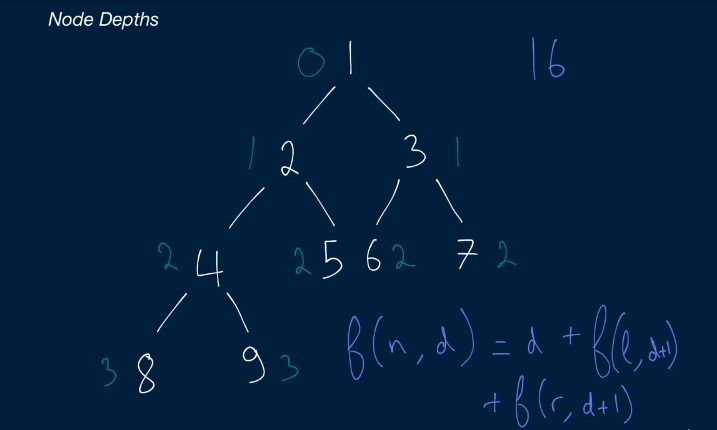 Node Depths
0 1 16
1 2 3 1
2 4 2 5 6 2 7 2
3 8 9 3
f(n, d) = d + f(l, d+1)
+ f(r, d+1)